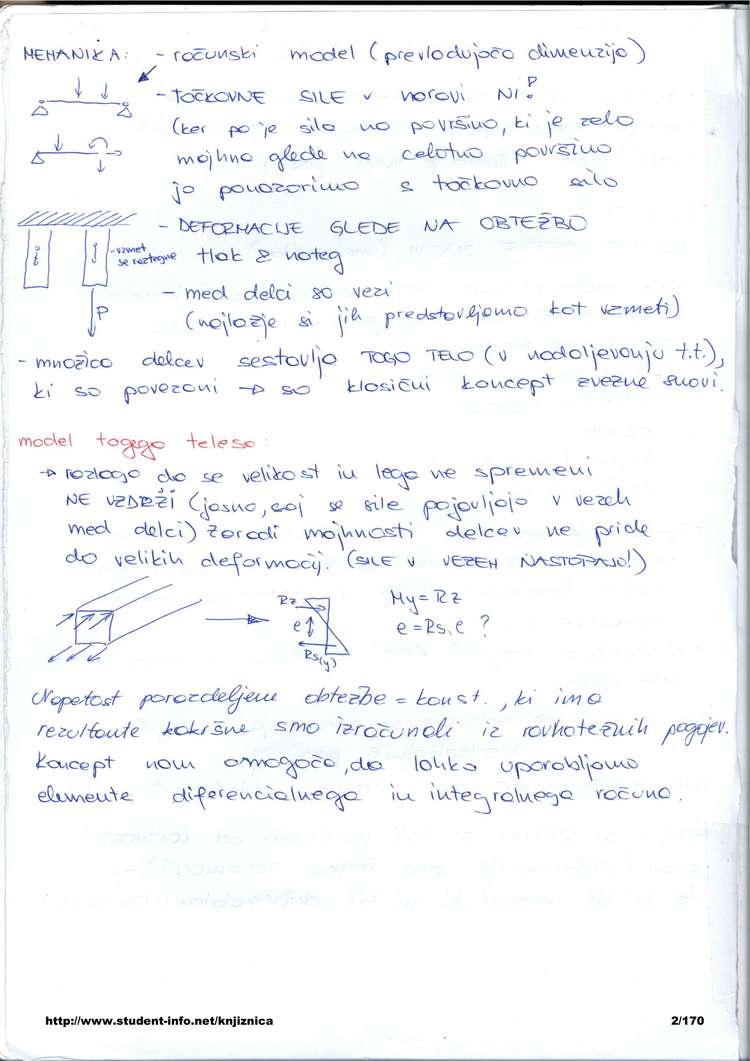 MEHANIKA: - računski model (prevladujoča dimenzija)
- TOČKOVNE SILE v naravi NI!
P
(ker pa je sila na površino, ki je zelo
majhna glede na celotno površino
jo ponazorimo s točkovno silo
- DEFORMACIJE GLEDE NA OBTEŽBO
- vzmet
se raztegne
tlak & nateg
- med delci so vezi
P
(najlažje si jih predstavljamo kot vzmeti)
- množico delcev sestavlja TOGO TELO (v nadaljevanju t.t.),
ki so povezani → so klasični koncept zvezne snovi.
model togega telesa:
→ razlaga da se velikost in lega ne spremeni
NE VZDRŽI (jasno, saj se sile pojavljajo v vezeh
med delci) Zaradi majhnosti delcev ne pride
do velikih deformacij. (SILE V VEZEH NASTOPAJO!)
Rz
e
Rs(y)
My = Rz
e = Rs, e ?
Napetost porazdeljene obtežbe = konst., ki ima
rezultante kakršne smo izračunali iz ravnotežnih pogojev.
Koncept nam omogoča, da lahko uporabljamo
elemente diferencialnega in integralnega računa.
http://www.student-info.net/knjiznica
2/170